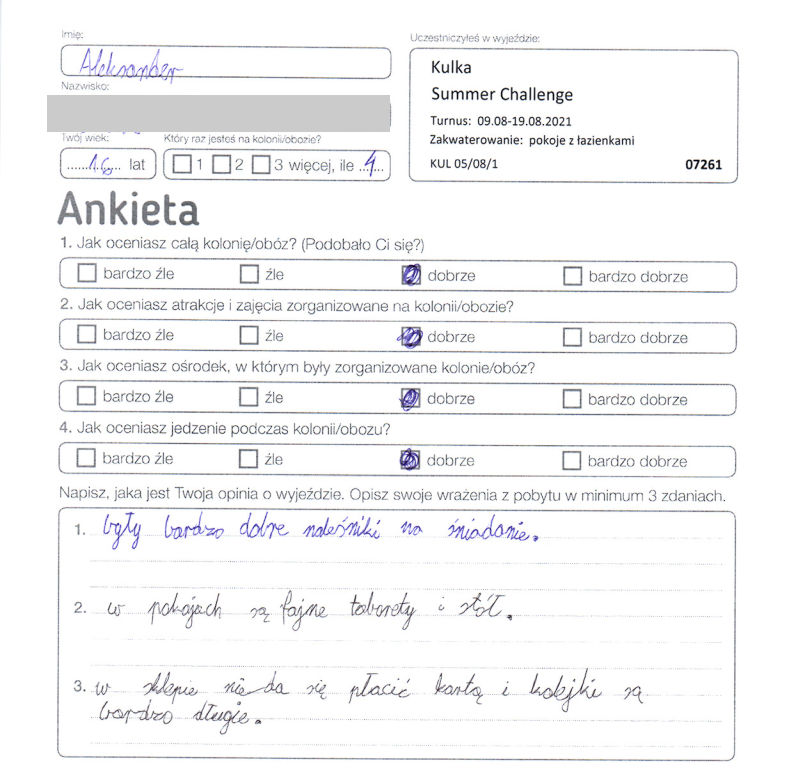 Imię:
Aleksander
Nazwisko:
Twój wiek:
16 lat
Który raz jesteś na kolonii/obozie?
1 2 3 więcej, ile 4
Uczestniczyłeś w wyjeździe:
Kulka
Summer Challenge
Turnus: 09.08-19.08.2021
Zakwaterowanie: pokoje z łazienkami
KUL 05/08/1 07261
Ankieta
1. Jak oceniasz całą kolonię/obóz? (Podobało Ci się?)
bardzo źle źle dobrze bardzo dobrze
2. Jak oceniasz atrakcje i zajęcia zorganizowane na kolonii/obozie?
bardzo źle źle dobrze bardzo dobrze
3. Jak oceniasz ośrodek, w którym były zorganizowane kolonie/obóz?
bardzo źle źle dobrze bardzo dobrze
4. Jak oceniasz jedzenie podczas kolonii/obozu?
bardzo źle źle dobrze bardzo dobrze
Napisz, jaka jest Twoja opinia o wyjeździe. Opisz swoje wrażenia z pobytu w minimum 3 zdaniach.
1. były bardzo dobre naleśniki na śniadanie.
2. w pokojach są fajne taborety i stół.
3. w sklepie nie da się płacić kartą i kolejki są
bardzo długie.